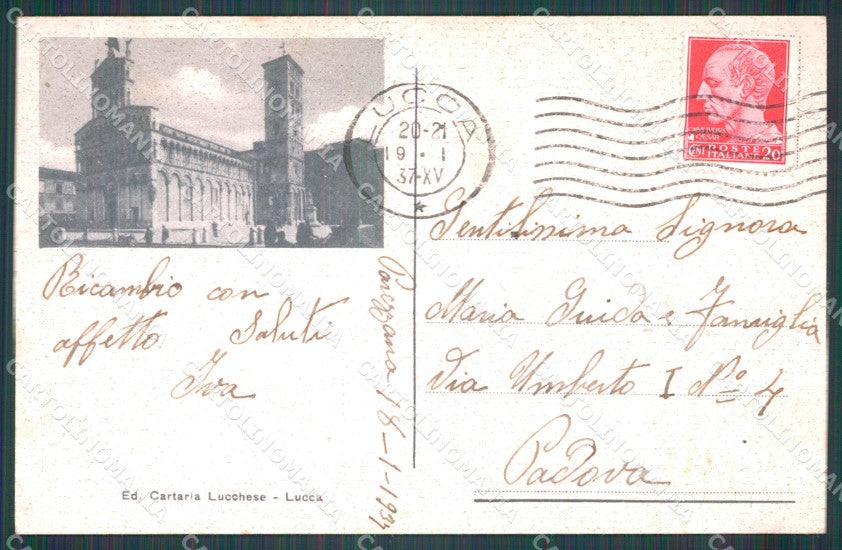 LUCCA
20-21
19 · 1
37-XV
POSTE
ITALIANE 20
Gentilissima Signora
Maria Guida e Famiglia
Via Umberto I Nº 4
Padova
Ricambio con
affetto saluti
Iva
18-1-1937
Ed. Cartaria Lucchese - Lucca
CARTOLINOMANIA